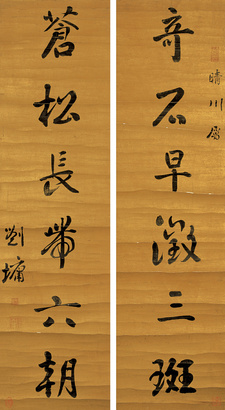 奇石早澂三斑
晴川屬
蒼松長帶六朝
劉墉